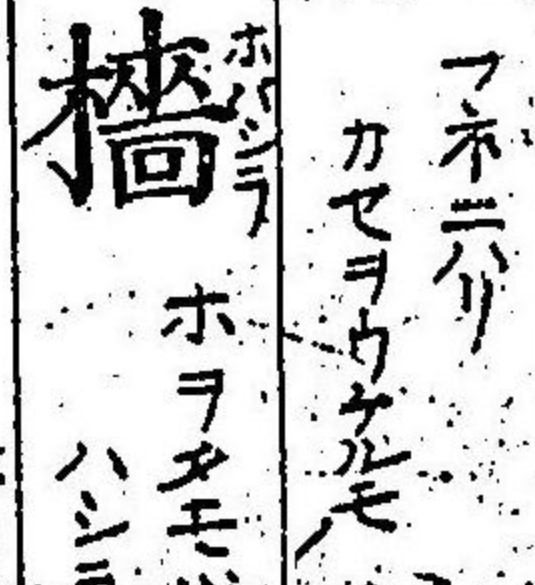 フネニハリ
カセヲウケルモノ
檣
ホバシラ
ホヲタモ
ハシ